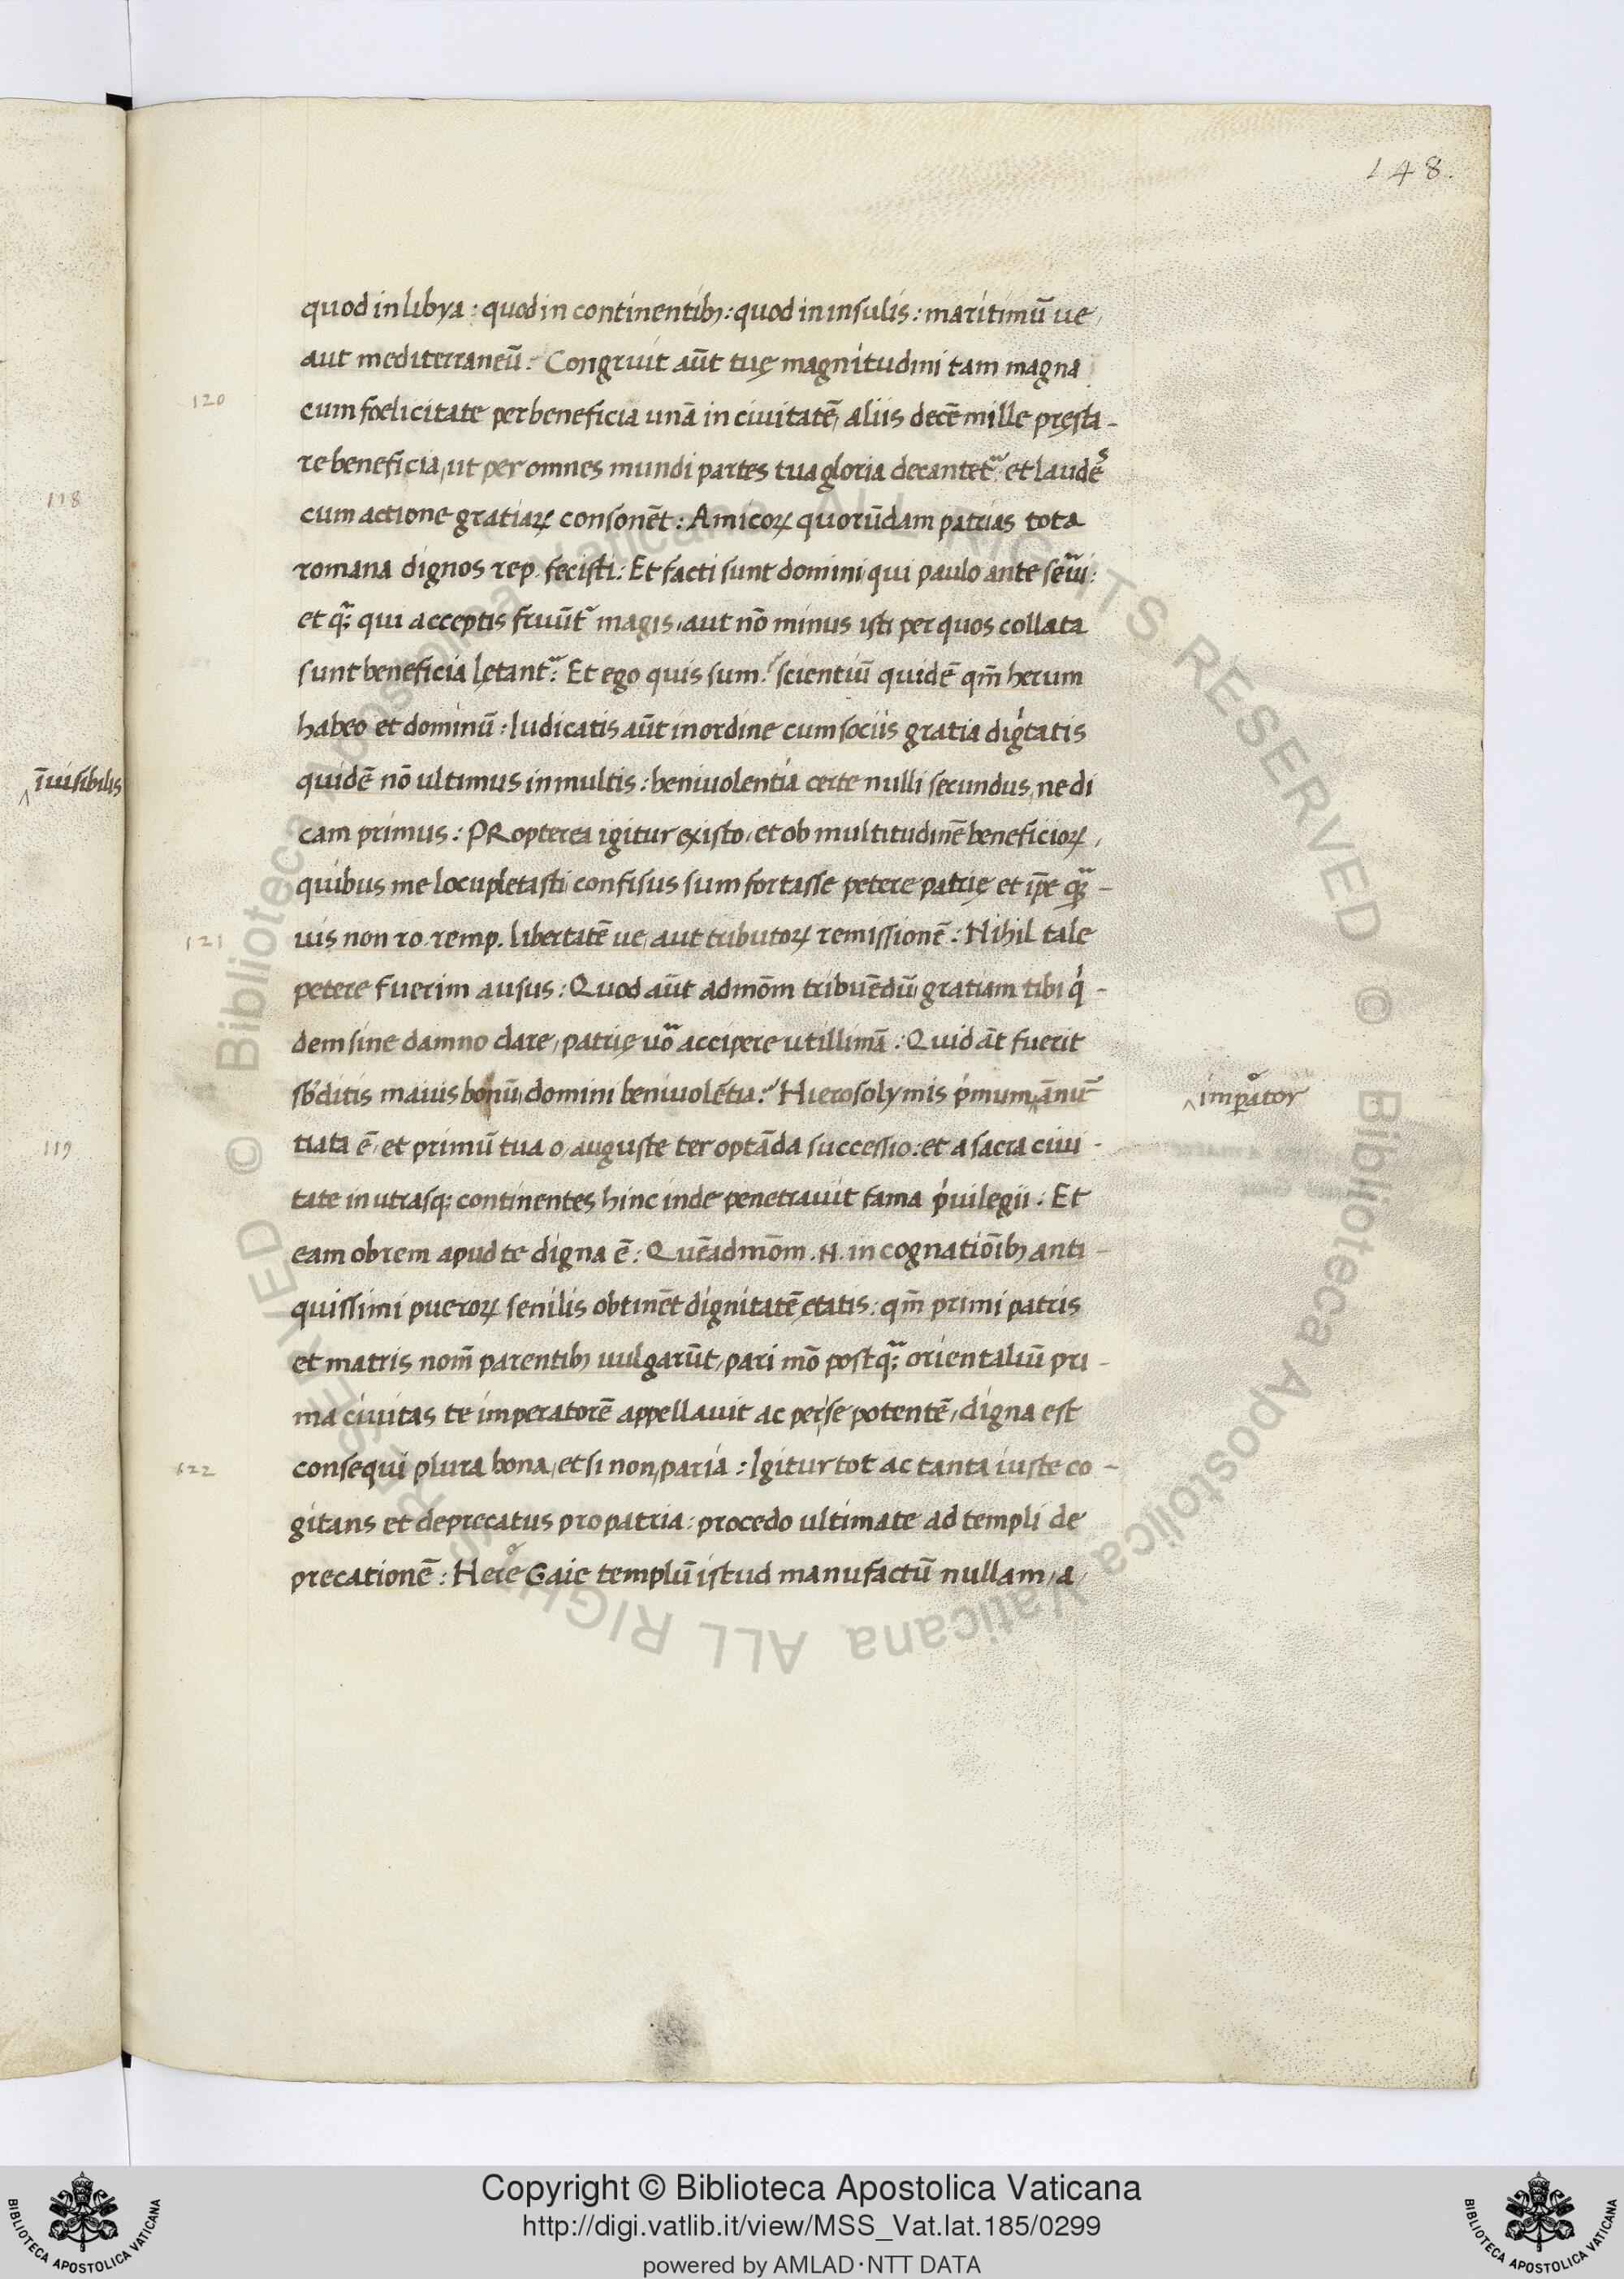 148.
quod in libya : quod in continentibꝫ : quod in insulis : maritimū ue,
aut mediterraneū : Congruit aūt tuę magnitudini tam magna
120
cum foelicitate per beneficia unā in ciuitatē, aliis decē mille pręsta-
re beneficia, ut per omnes mundi partes tua gloria decantet᷑ : et laudēs
118
cum actione gratiaꝝ consonēt : Amicoꝝ quorūdam patrias tota
romana dignos rep. fecisti : Et facti sunt domini qui paulo ante
et qui acceptis fruūt᷑ magis, aut nō minus isti per quos collata
sunt beneficia lętant᷑ : Et ego quis sum? scientiū quidē qm̄ herum
habeo et dominū : Iudicatis aūt in ordine cum sociis gratia digtatis
quidē nō ultimus in multis : beniuolentia certe nulli secundus, ne di
īuisibilis
cam primus : PRopterea igitur existo, et ob multitudinē beneficioꝝ,
quibus me locupletasti confisus sum fortasse petere patrię et ip̄e
121
uis non ro. remp. libertatē ue, aut tributoꝝ remissionē : Nihil tale
petere fuerim ausus : Quod aūt admōm tribuēdū, gratiam tibi qⁱ-
dem sine damno dare, patrię uo accipere utillimā : Quid āt fuerit
sb'ditis maius bonū, domini beniuolētia? Hierosolymis pⁱmum ‸ ānu-
‸ imꝑator
119
tiata ē, et primū tua o, auguste ter optāda successio : et a sacra ciui-
tate in utrasqꝫ continentes hinc inde penetrauit fama pⁱuilegii : Et
eam ob rem apud te digna ē : Quēadmōm .N. in cognatiōibꝫ anti-
quissimi pueroꝝ senilis obtinēt dignitatē ętatis : qm̄ primi patris
et matris nom̄ parentibꝫ uulgarūt, pari mō postq orientaliū pri-
ma ciuitas te imperatorē appellauit ac per se potentē, digna est
122
consequi plura bona, et si non paria : Igitur tot ac tanta iuste co-
gitans et deprecatus pro patria : procedo ultimate ad templi de
precationē : Here Gaie templū istud manufactū nullam, a,
BIBLIOTECA APOSTOLICA VATICANA
Copyright © Biblioteca Apostolica Vaticana
http://digi.vatlib.it/view/MSS_Vat.lat.185/0299
powered by AMLAD·NTT DATA
BIBLIOTECA APOSTOLICA VATICANA
© Biblioteca Apostolica Vaticana ALL RIGHTS RESERVED © Biblioteca Apostolica Vaticana ALL RIGHTS RESERVED